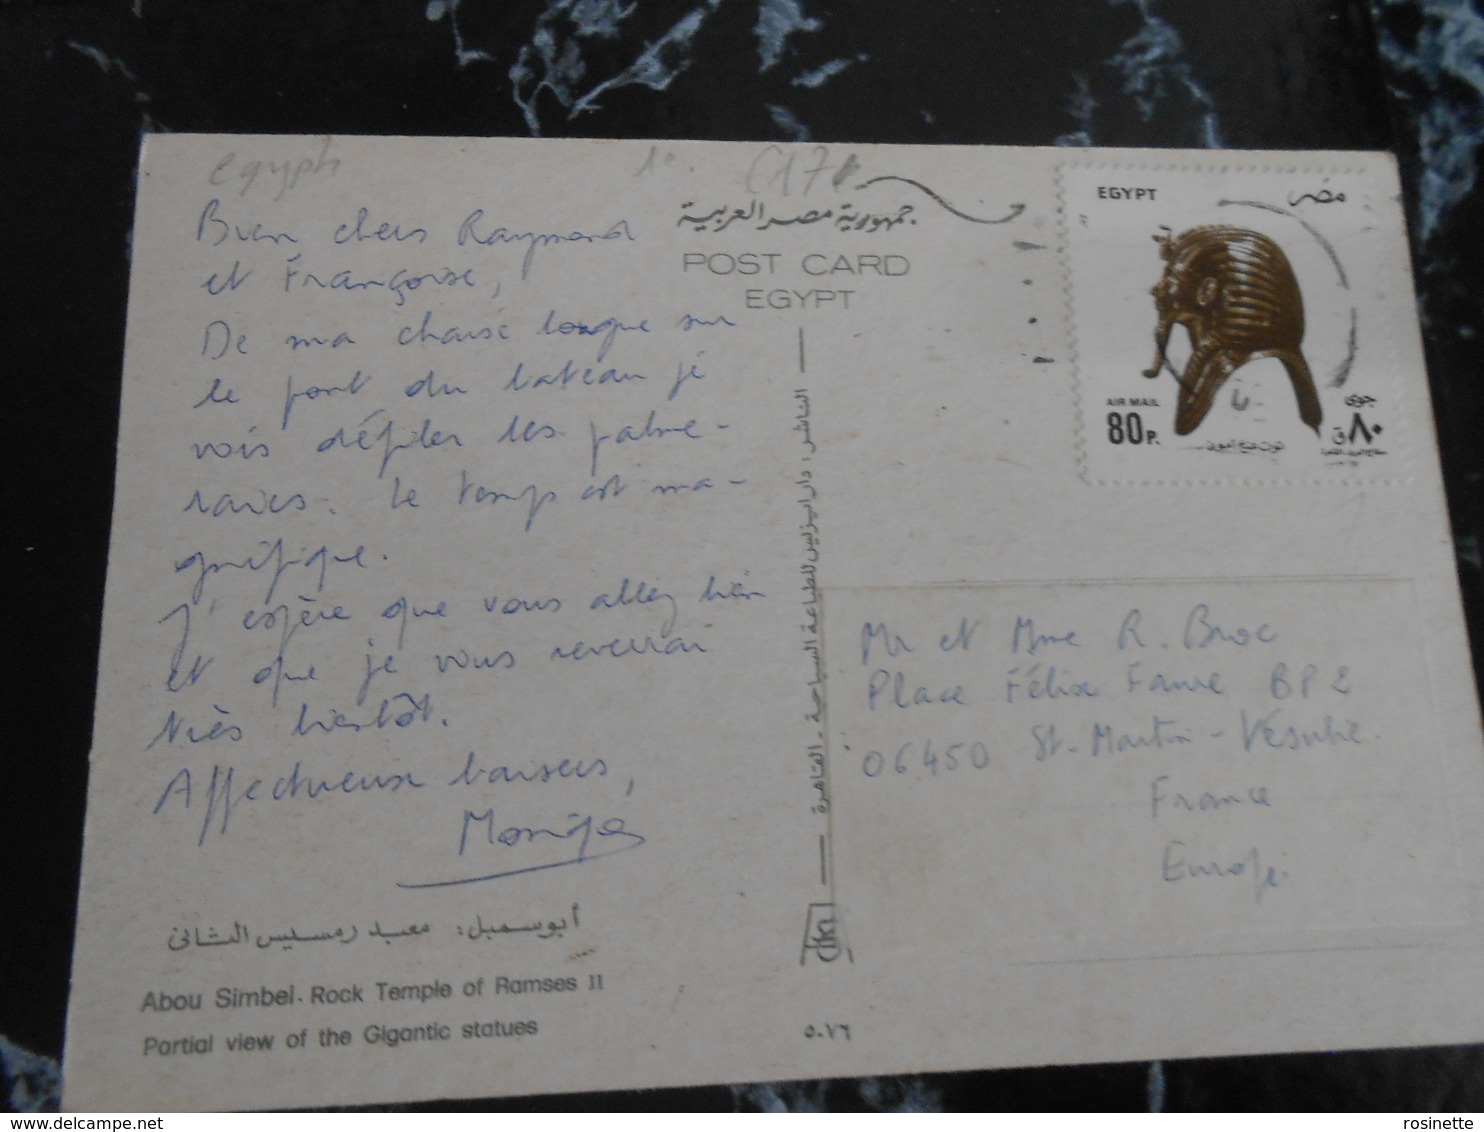 egyph
1e
Bien chers Raymond
et Françoise,
De ma chaise longue sur
le pont du bateau je
vois défiler les palme-
raies. Le temps est ma-
gnifique.
J'espère que vous allez bien
et que je vous reverrai
très bientôt.
Affectueux baisers,
Monique
أبو سمبل: معبد رمسيس الثانى
Abou Simbel. Rock Temple of Ramses II
Partial view of the Gigantic statues
جمهورية مصر العربية
POST CARD
EGYPT
الناشر: دار ايزيس للطباعة السياحية - القاهرة
٥٠٧٦
EGYPT مصر
AIR MAIL
80 P.
٨٠ ق
جوى
Mr et Mme R. Broc
Place Félix Faure BP 2
06450 St. Martin-Vésubie.
France
Europe.
rosinette